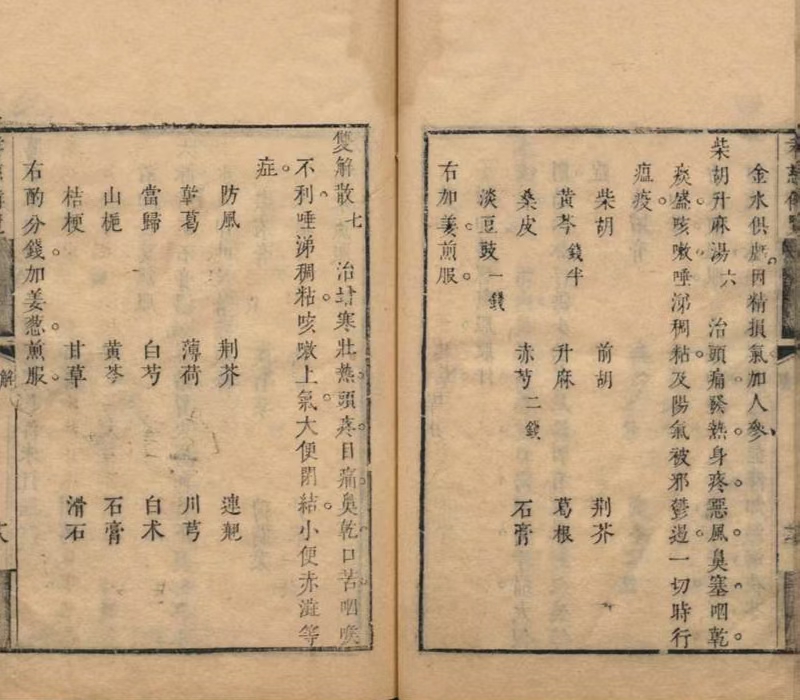 金水供虛。因精損氣。加人參、
柴胡升麻湯六 治頭痛發熱。身疼。惡風。鼻塞。咽乾。
痰盛。咳嗽。唾涕稠粘。及陽氣被邪鬱遏。一切時行
瘟疫。
柴胡 前胡 荆芥
黃芩錢半 升麻 葛根
桑皮 赤芍二錢 石膏
淡豆豉一錢
右加姜煎服。
雙解散七 治寒壯熱。頭疼目痛。鼻乾。口苦。咽喉
不利。唾涕稠粘。咳嗽上氣。大便閉結。小便赤澁等
症。
防風 荆芥 連翹
乾葛 薄荷 川芎
當歸 白芍 白术
山梔 黃芩 石膏
桔梗 甘草 滑石
右酌分錢。加姜葱。煎服。
解